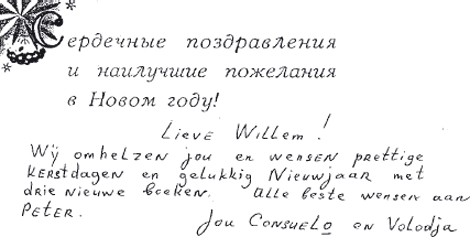 Сердечные поздравления
и наилучшие пожелания
в Новом году!
Lieve Willem!
Wij omhelzen jou en wensen prettige
kerstdagen en gelukkig Nieuwjaar met
drie nieuwe boeken. Alle beste wensen aan
Peter.
Jou Consuelo en Volodja